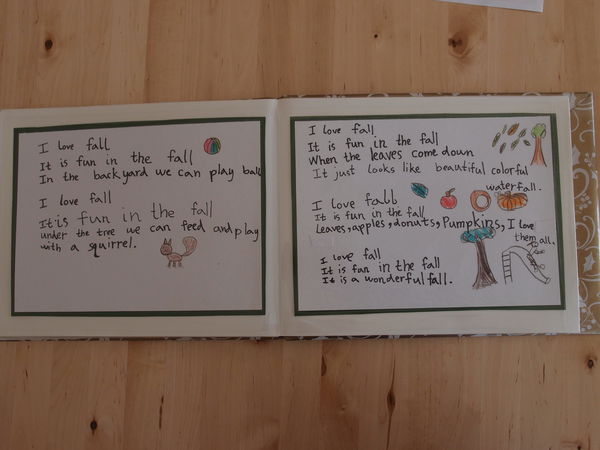 I love fall
It is fun in the fall
In the backyard we can play ball
I love fall
It is fun in the fall
under the tree we can feed and play
with a squirrel.
I love fall
It is fun in the fall
When the leaves come down
It just looks like beautiful colorful
waterfall.
I love fall
It is fun in the fall
Leaves, apples, donuts, Pumpkins, I love
them all.
I love fall
It is fun in the fall
It is a wonderful fall.